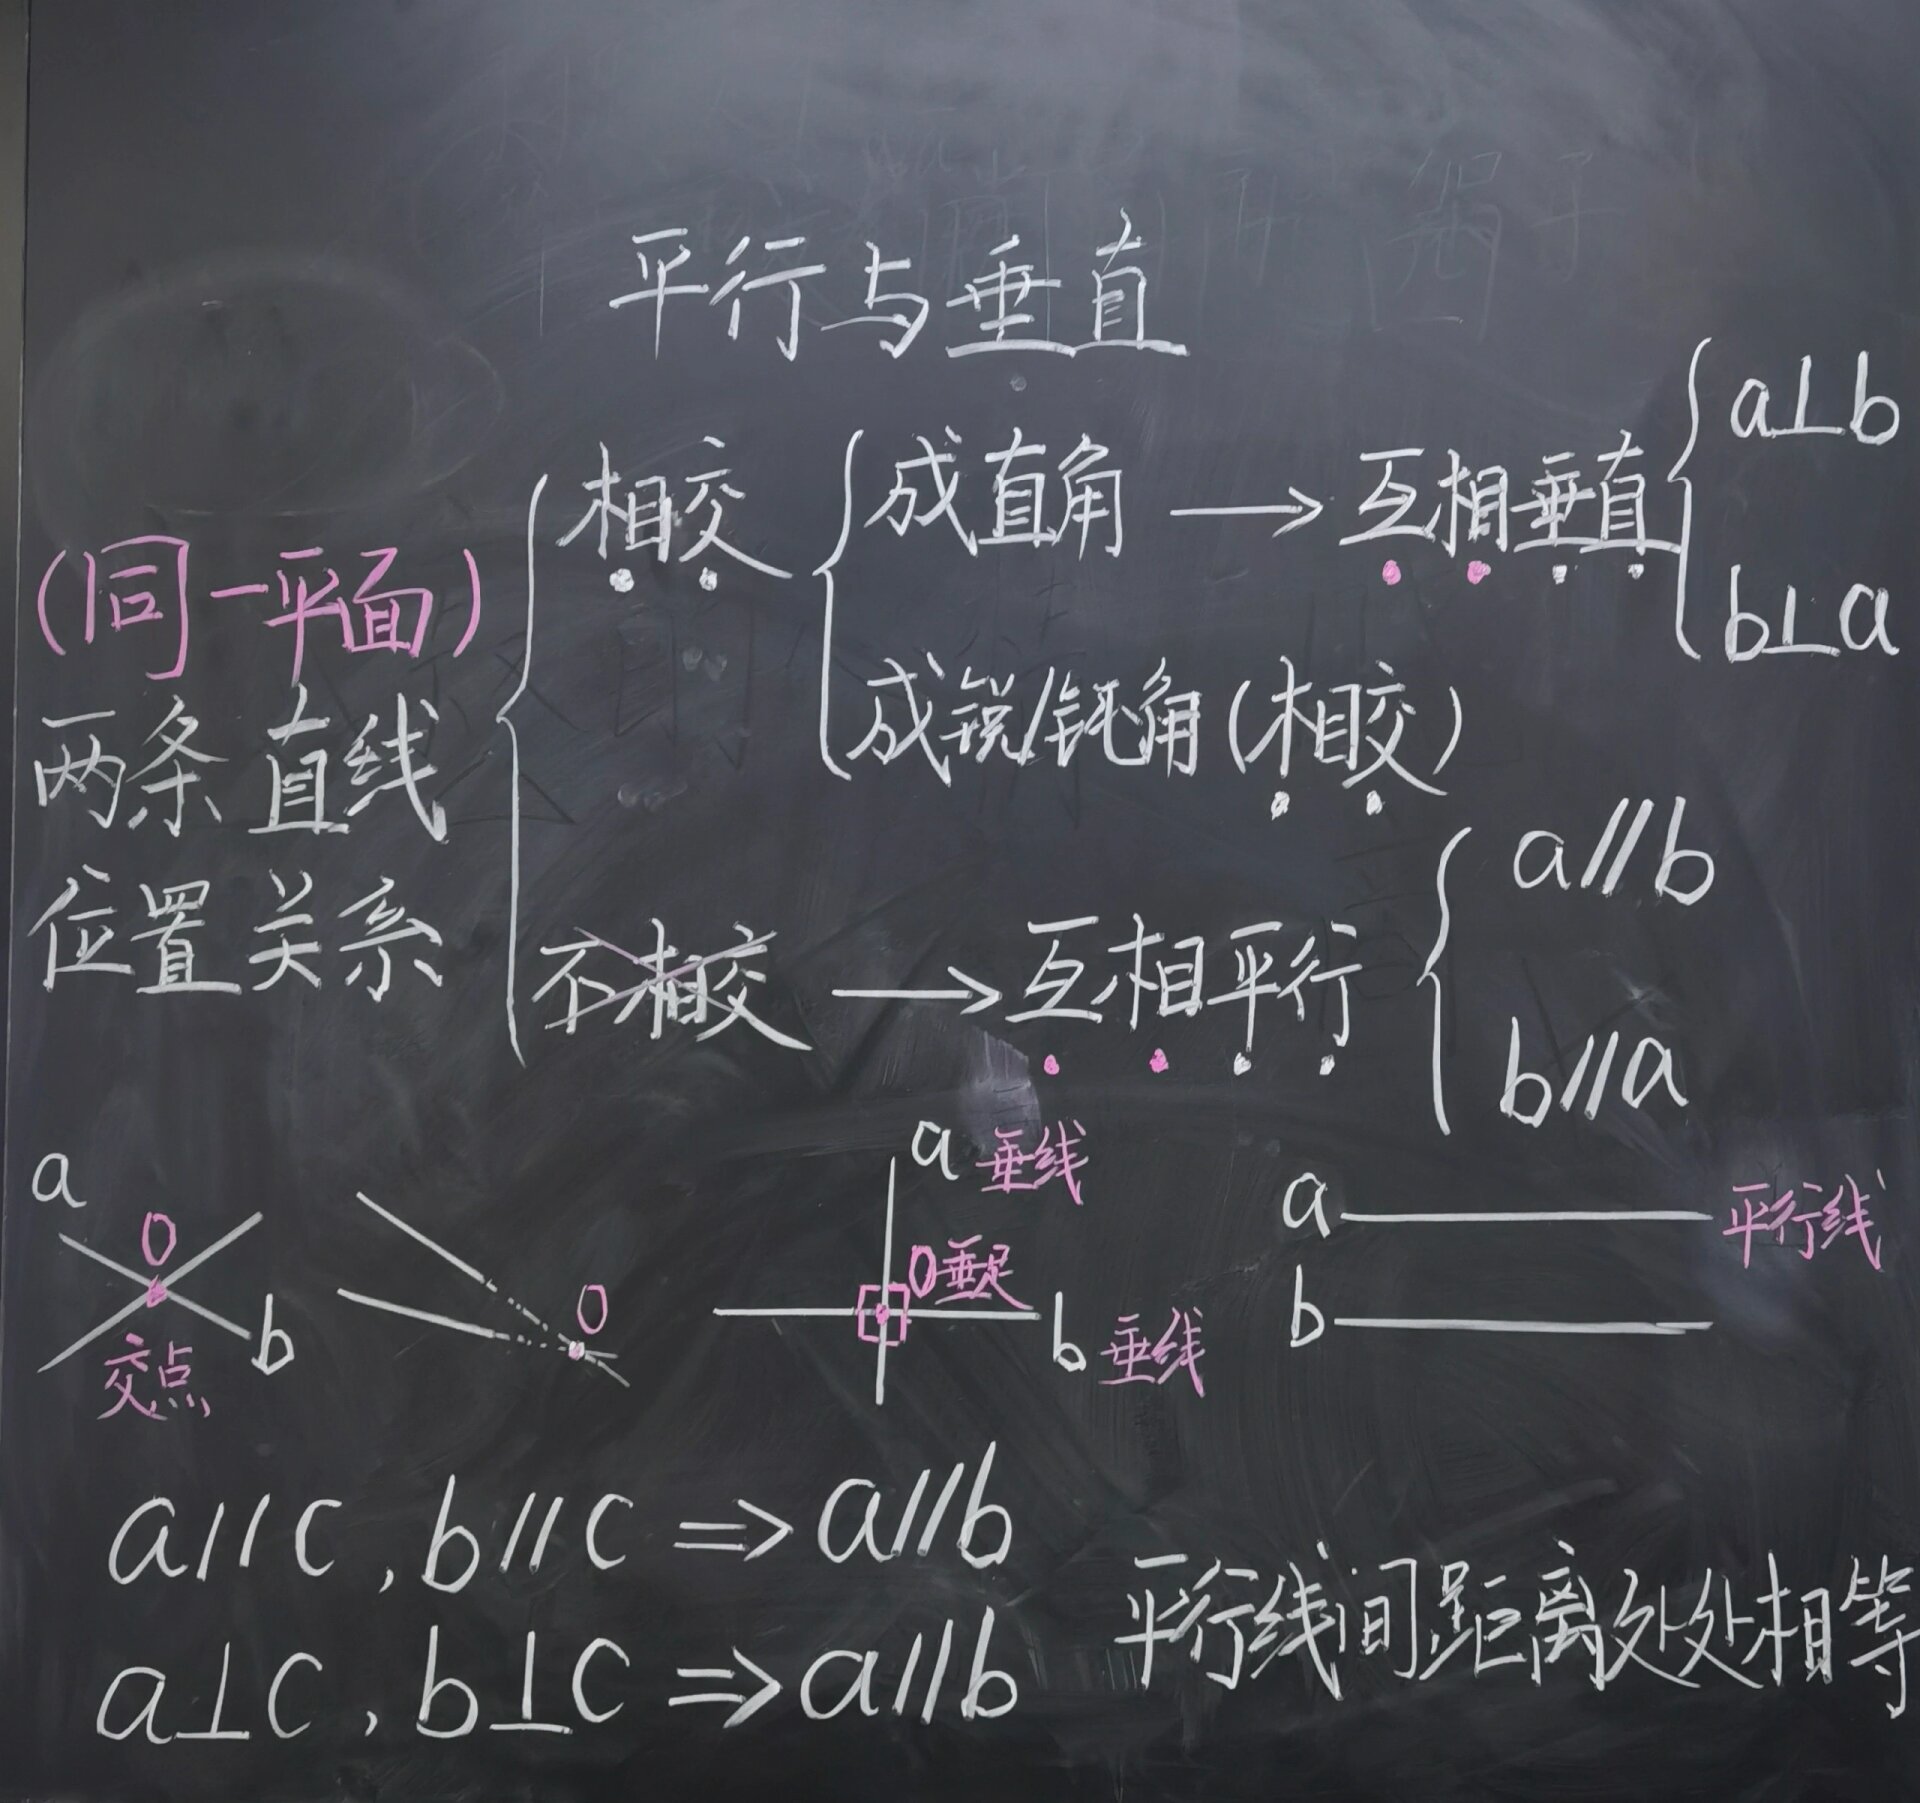 平行与垂直
(同一平面)
两条直线
位置关系
相交
成直角 → 互相垂直
a⊥b
b⊥a
成锐/钝角(相交)
不相交 → 互相平行
a//b
b//a
a
O
交点
b
O
a 垂线
O垂足
b 垂线
a 平行线
b
a//c,b//c⇒a//b
a⊥c,b⊥c⇒a//b
平行线间距离处处相等